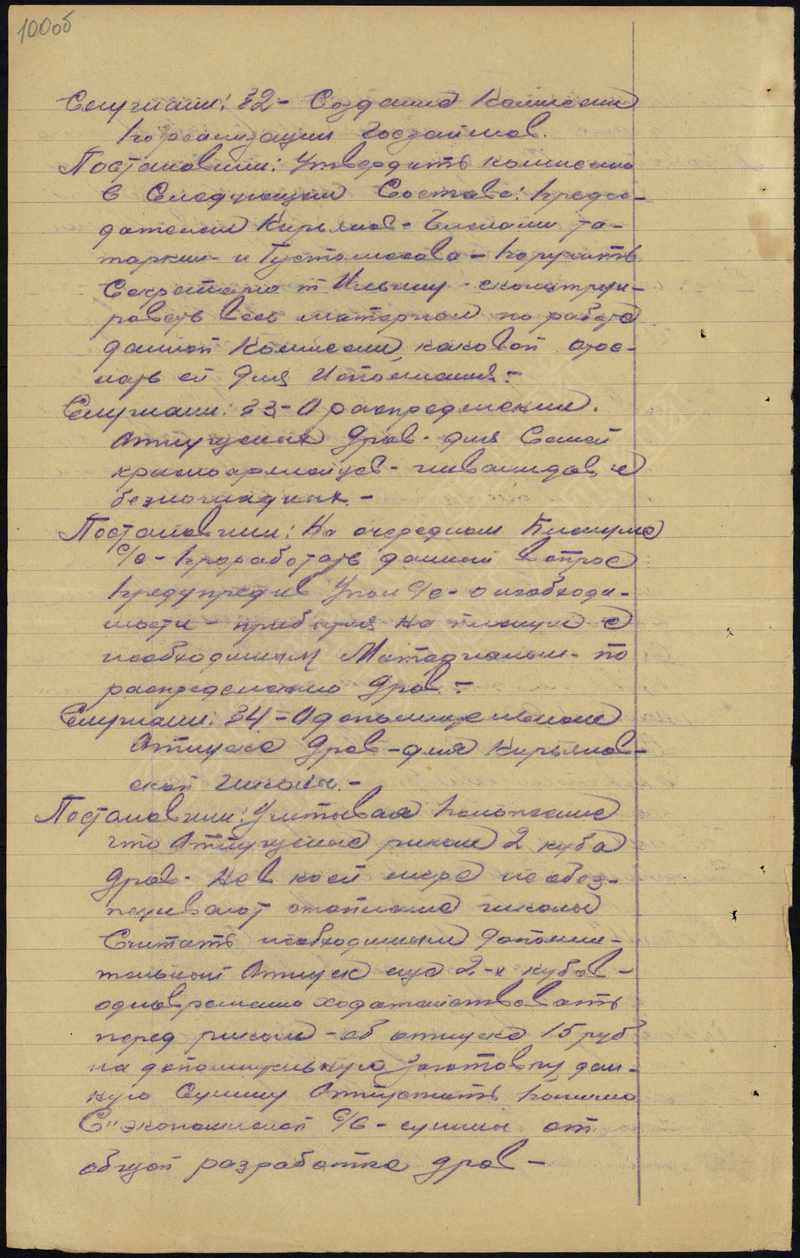 100об
Слушали: 82 - Создание Комиссии
по реализации госзаймов.
Постановили: Утвердить комиссию
в Следующем Составе: Предсе-
дателем Кирьянов - Членами та-
таркин - и Густомесова - поручить
Секретарю т Ильину - сконструи-
ровать весь материал по работе
данной Комиссии, каковой отос-
лать ей для Исполнения. -
Слушали: 83 - О распределении.
отпускных Дров - для Семей
красноармейцев - инвалидов и
безлошадных. -
Постановили: На очередном Пленуме
С/С - проработать данный вопрос
предупредив Упол С/С - о необходи-
мости - прибытия на пленум с
необходимым Материалом - по
распределению Дров. -
Слушали: 84 - О дополнительном
отпуске Дров - для Кирьянов-
ской школы. -
Постановили: Учитывая положение
что Отпускные риком 2 куба
Дров - не в коей мере не обез-
печивают отопление школы
Считать необходимым дополни-
тельный Отпуск еще 2-х кубов -
одновременно ходатайствовать
перед риком - об отпуске 15 руб
на дополнительную заготовку дан-
ную Сумму Отпустить помимо
С/С - суммы от
общей разработке дров -